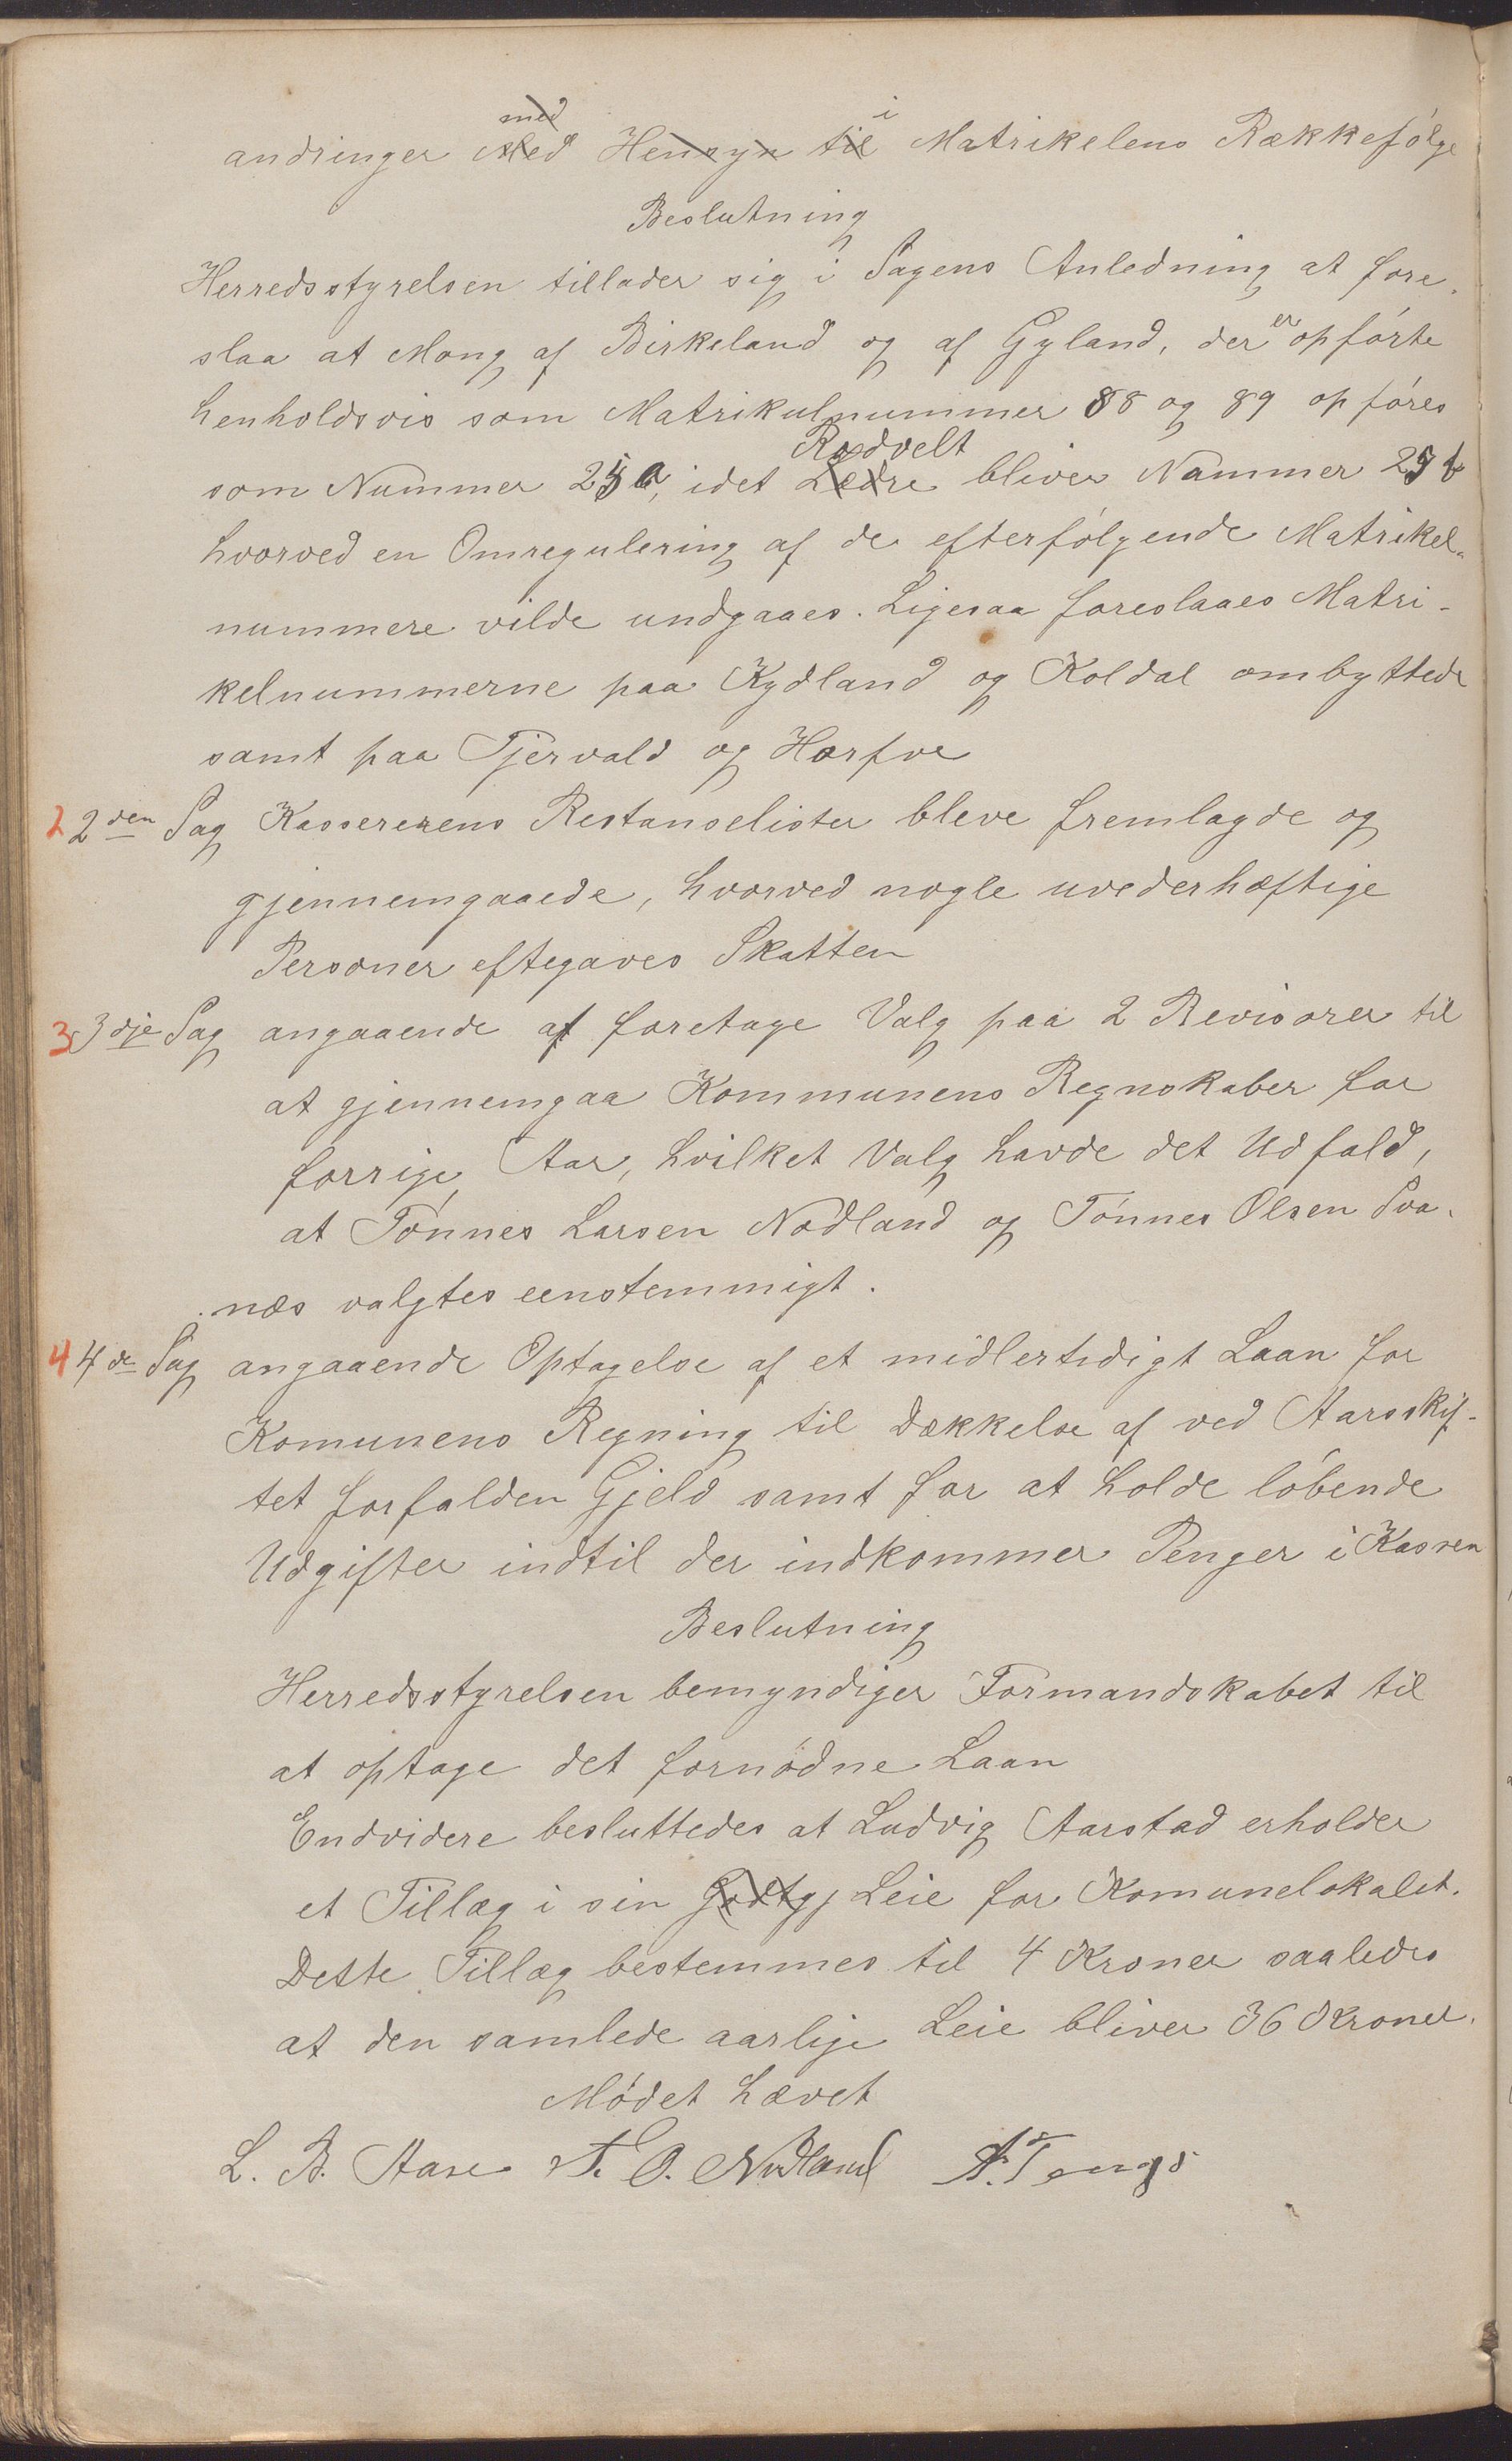 andringer i Matrikelens Rækkefølge
Beslutning
Herredsstyrelsen tillader sig i Sagens Anledning at fore-
slaa at Mong af Birkeland og af Gyland, der er opførte
henholdsvis som Matrikulnummer 88 og 89 opføres
som Nummer 25 a, idet Rødvelt bliver Nummer 25 b
hvorved en Omregulering af de efterfølgende Matrikel-
nummere vilde undgaaes. Ligesaa foreslaaes Matri-
kelnummerne paa Kydland og Koldal ombyttede
samt paa Tjervald og Horpve
2 2den Sag Kassererens Restanselister bleve fremlagde og
gjennemgaaede, hvorved nogle uvederhæftige
Personer eftegaves Skatten
3 3dje Sag angaaende at foretage Valg paa 2 Revisorer til
at gjennemgaa Kommunens Regnskaber for
forrige Aar, hvilket Valg havde det Udfald,
at Tønnes Larsen Nodland og Tønnes Olsen Sva-
næs valgtes eenstemmigt.
4 4de Sag angaaende Optagelse af et midlertidigt Laan for
Komunens Regning til Dækkelse af ved Aarsskif-
tet forfalden Gjeld samt for at holde løbende
Udgifter indtil der indkommer Penger i Kassen
Beslutning
Herredsstyrelsen bemyndiger Formandskabet til
at optage det fornødne Laan
Endvidere besluttedes at Ludvig Aarstad erholder
et Tillæg i sin Godtgj Leie for Komunelokalet.
Dette Tillæg bestemmes til 4 Kroner saaledes
at den samlede aarlige Leie bliver 36 Kroner.
Mødet hævet
L. B. Aase T. O. Nodland A. Tengs